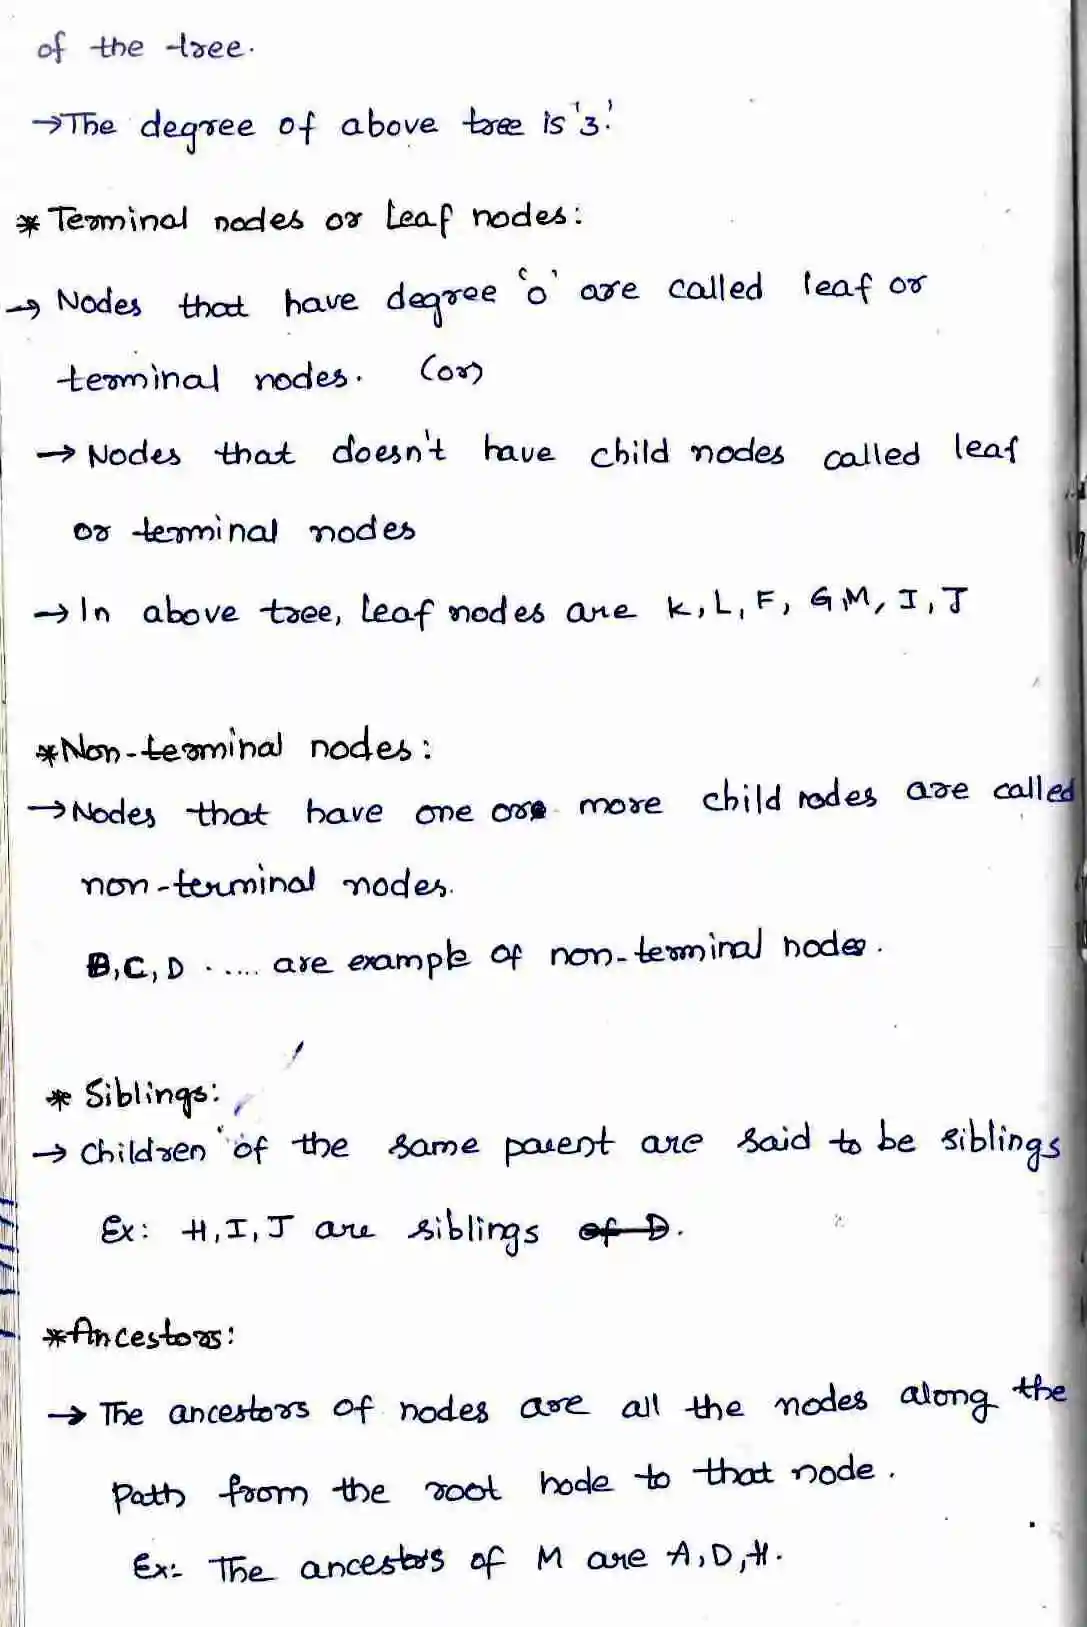 of the tree.
→The degree of above tree is '3'.
* Terminal nodes or Leaf nodes:
→ Nodes that have degree '0' are called leaf or
terminal nodes. (or)
→ Nodes that doesn't have child nodes called leaf
or terminal nodes
→ In above tree, Leaf nodes are K, L, F, G, M, I, J
*Non-terminal nodes:
→ Nodes that have one or more child nodes are called
non-terminal nodes.
B, C, D ..... are example of non-terminal nodes.
* Siblings:
→ children of the same parent are said to be siblings
Ex: H, I, J are siblings of D.
*Ancestors:
→ The ancestors of nodes are all the nodes along the
Path from the root node to that node.
Ex:- The ancestors of M are A, D, H.